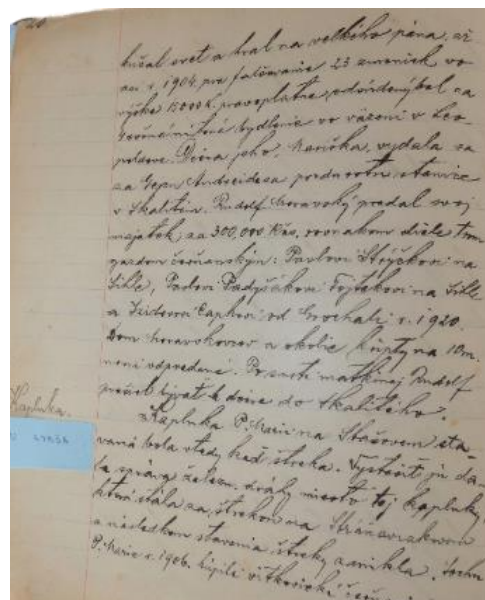 kúčal svet a hral na velkého pána, až
asi r. 1904 pre falšovanie 23 zmeniek vo
výške 15000 K. pravoplatne odsúdený bol na
bydlenie vo väzení v Leo-
poldove. Dcéra jeho, Marička, vydala sa
za Gejzu Andreidesa prednostu stanice
v Skalitom. Rudolf Moravský predal svoj
majetok za 300,000 Kčs. rovnakom diele trom
gazdom čerňanským: Pavlovi Strýčkovi na
Sihle, Pavlovi Padyšákovi Fojtekovi na Sihle
a Izidorovi Capkovi od Grochala r. 1920.
Dom Moravskovcov a okolie kúpty na 10m.
neni odpredané. Po smrti matkinej Rudolf
prešiel bývať k dcére do Skalitého.
Kaplnka.
Kaplnka P. Marie na Strážovom sta-
vaná bola vtedy keď štreka. Vystaviť ju da-
la správa želézn. dráhy miesto tej kaplnky,
ktorá stála za štrekou na
a následkom stavenia štreky zanikla. Sochu
P. Marie r. 1906. kúpili vítkovickí